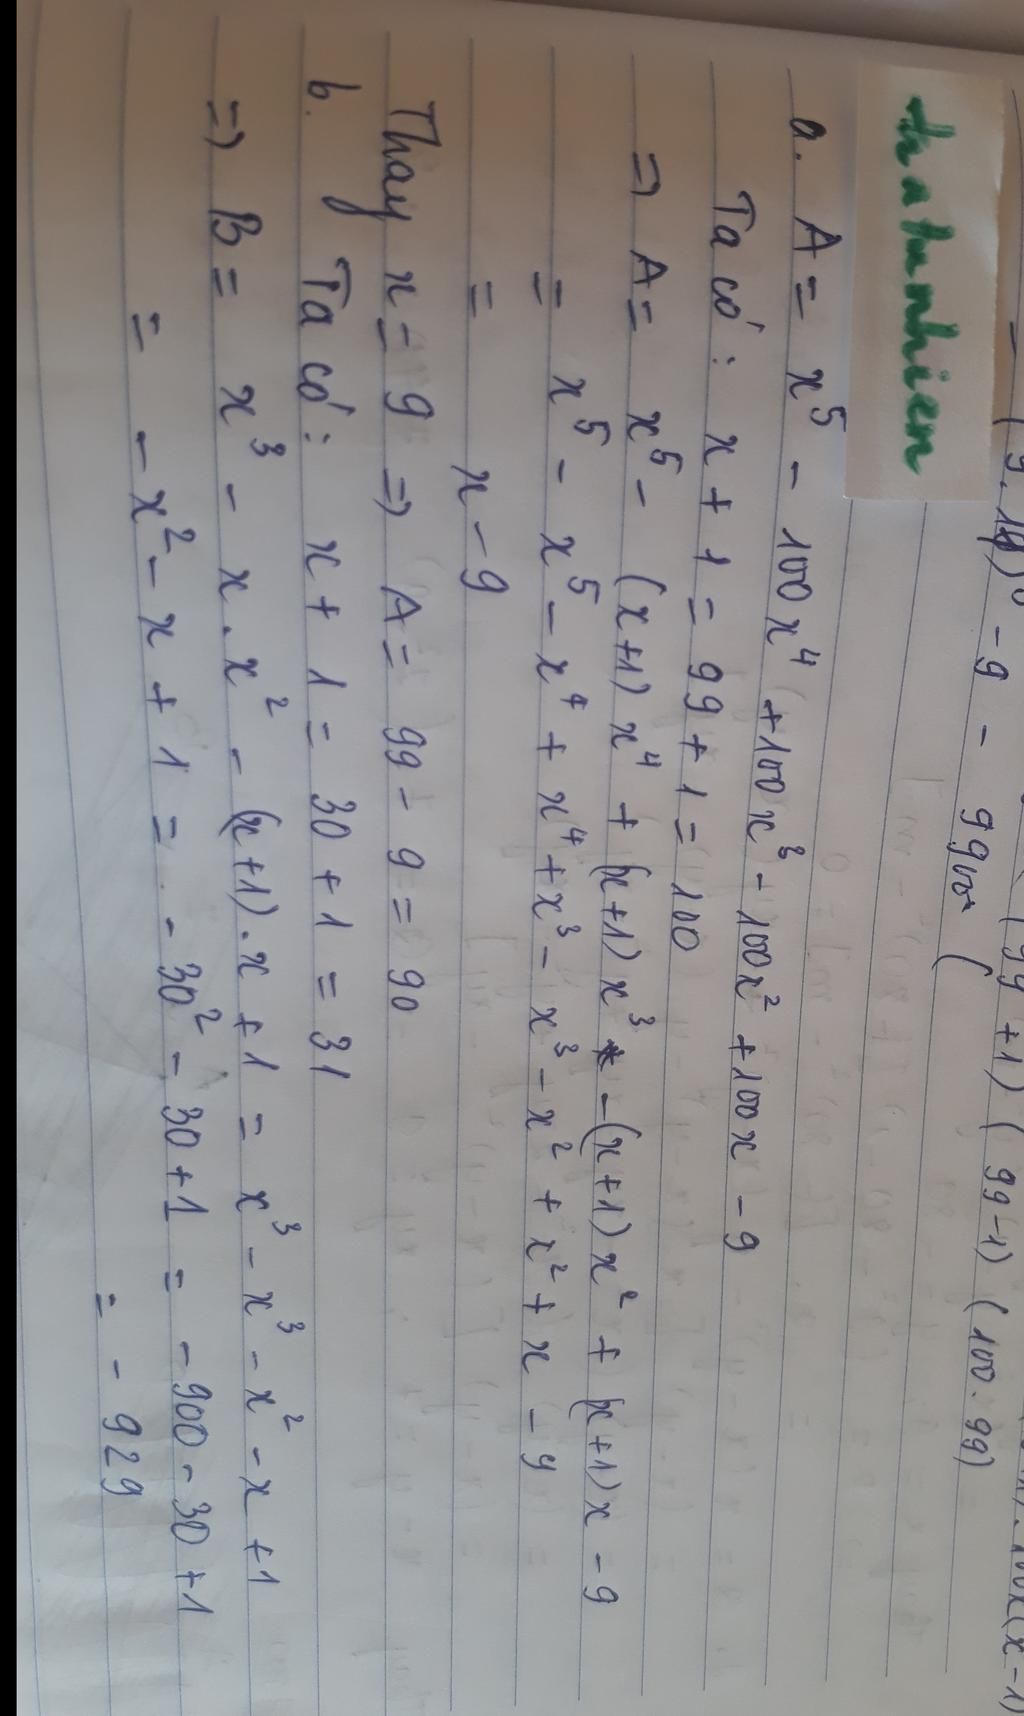 (9.19)⁰ - 9 - 99100 (99+1) (99-1) (100.99)
thatunhien
a. A = x⁵ - 100x⁴ + 100x³ - 100x² + 100x - 9
Ta có: x + 1 = 99 + 1 = 100
=> A = x⁵ - (x+1)x⁴ + (x+1)x³ - (x+1)x² + (x+1)x - 9
= x⁵ - x⁵ - x⁴ + x⁴ + x³ - x³ - x² + x² + x - 9
= x - 9
Thay x = 9 => A = 99 - 9 = 90
b. Ta có: x + 1 = 30 + 1 = 31
=> B = x³ - x.x² - (x+1).x + 1 = x³ - x³ - x² - x + 1
= - x² - x + 1 = - 30² - 30 + 1 = - 900 - 30 + 1
= - 929